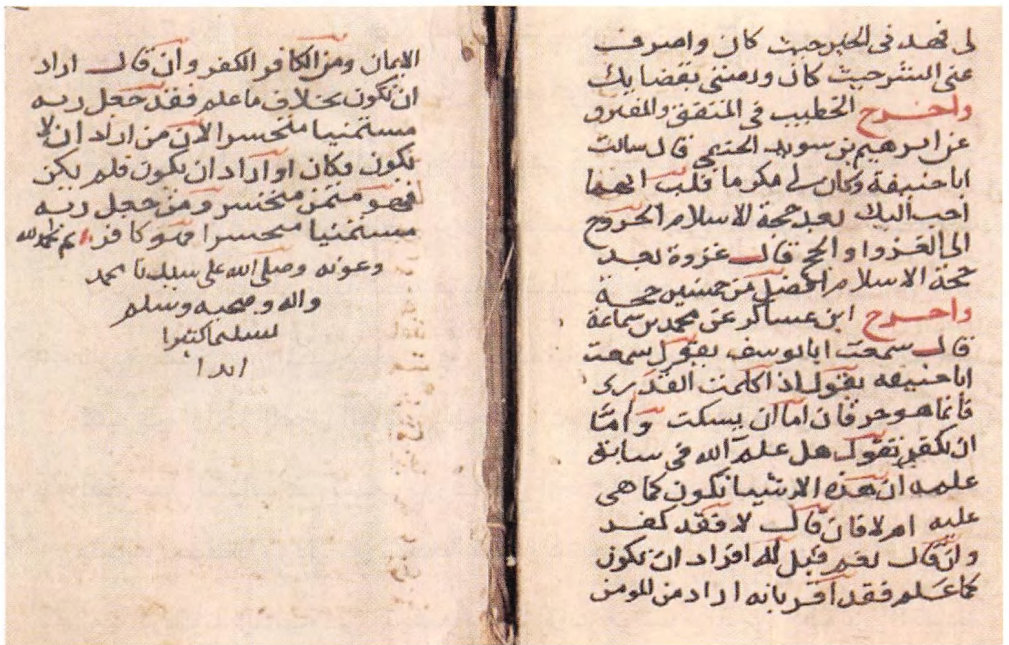 لى فهد فى الخير حيث كان واصرف
عنى الشر حيث كان ورضنى بقضايك
واخرج الخطيب فى المتفق والمفترق
عن ابرهيم بن سويد الحنفى قال سالت
اباحنيفة وكان لى مكرما قلت ايهما
احب اليك بعد حجة الاسلام الخروج
الى الغزوا والحج قال غزوة بعد
حجة الاسلام افضل من خمسين حجة
واخرج ابن عساكر عن محمد بن سماعة
قال سمعت ابا يوسف يقول سمعت
اباحنيفه يقول اذا كلمت القدرى
فانما هو حرفان اما ان يسكت واما
ان يكفر تقول هل علم الله فى سابق
علمه ان هذه الاشيا تكون كما هى
عليه ام لا فان قال لا فقد كفر
وان قال نعم قيل له افراد ان تكون
كما علم فقد اقر بانه اراد من المومن
الايمان ومن الكافر الكفر وان قال اراد
ان تكون بخلاف ما علم فقد جعل ربه
مستمنيا متحسرا لان من اراد ان لا
يكون فكان او اراد ان يكون فلم يكن
فهو متمن متحسر ومن جعل ربه
مستمنيا متحسرا فهو كافر تم بحمد الله
وعونه وصلى الله على سيدنا محمد
واله وصحبه وسلم
تسليما كثيرا
ابدا